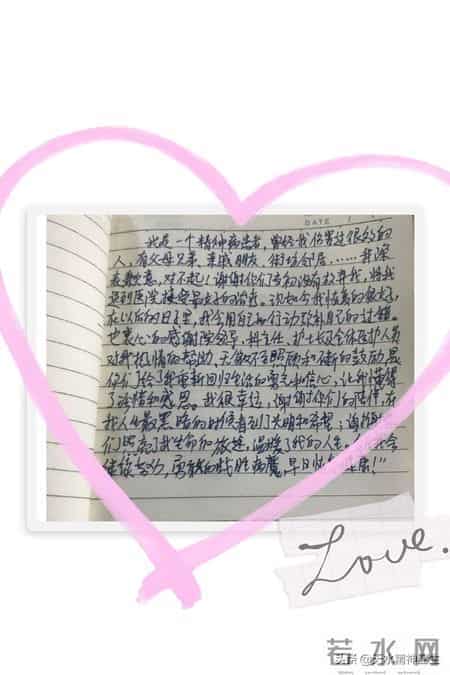 DATE
我是一个精神病患者，曾经我伤害过很多的
人，有父母兄弟、亲戚朋友、街坊邻居……并深
表歉意，对不起！谢谢你们当初没有放弃我，将我
送到医院接受最好的治疗。现如今我恢复的很好，
在以后的日子里，我会用自己的行动弥补自己的过错。
也衷心的感谢院领导、科主任、护士长及全体医护人员
对我热情的帮助、无微不至照顾和不断的鼓励，是
你们给了我重新回归生活的勇气和信心，让我懂得
了珍惜和感恩。我很幸运，谢谢你们的陪伴，在
我人生最黑暗的时候看到了光明和希望；谢谢
们照亮了我生命和旅途，温暖了我的人生。我会
继续努力，勇敢的战胜病魔，早日恢复健康！”
Love.
若水网
头条@天水